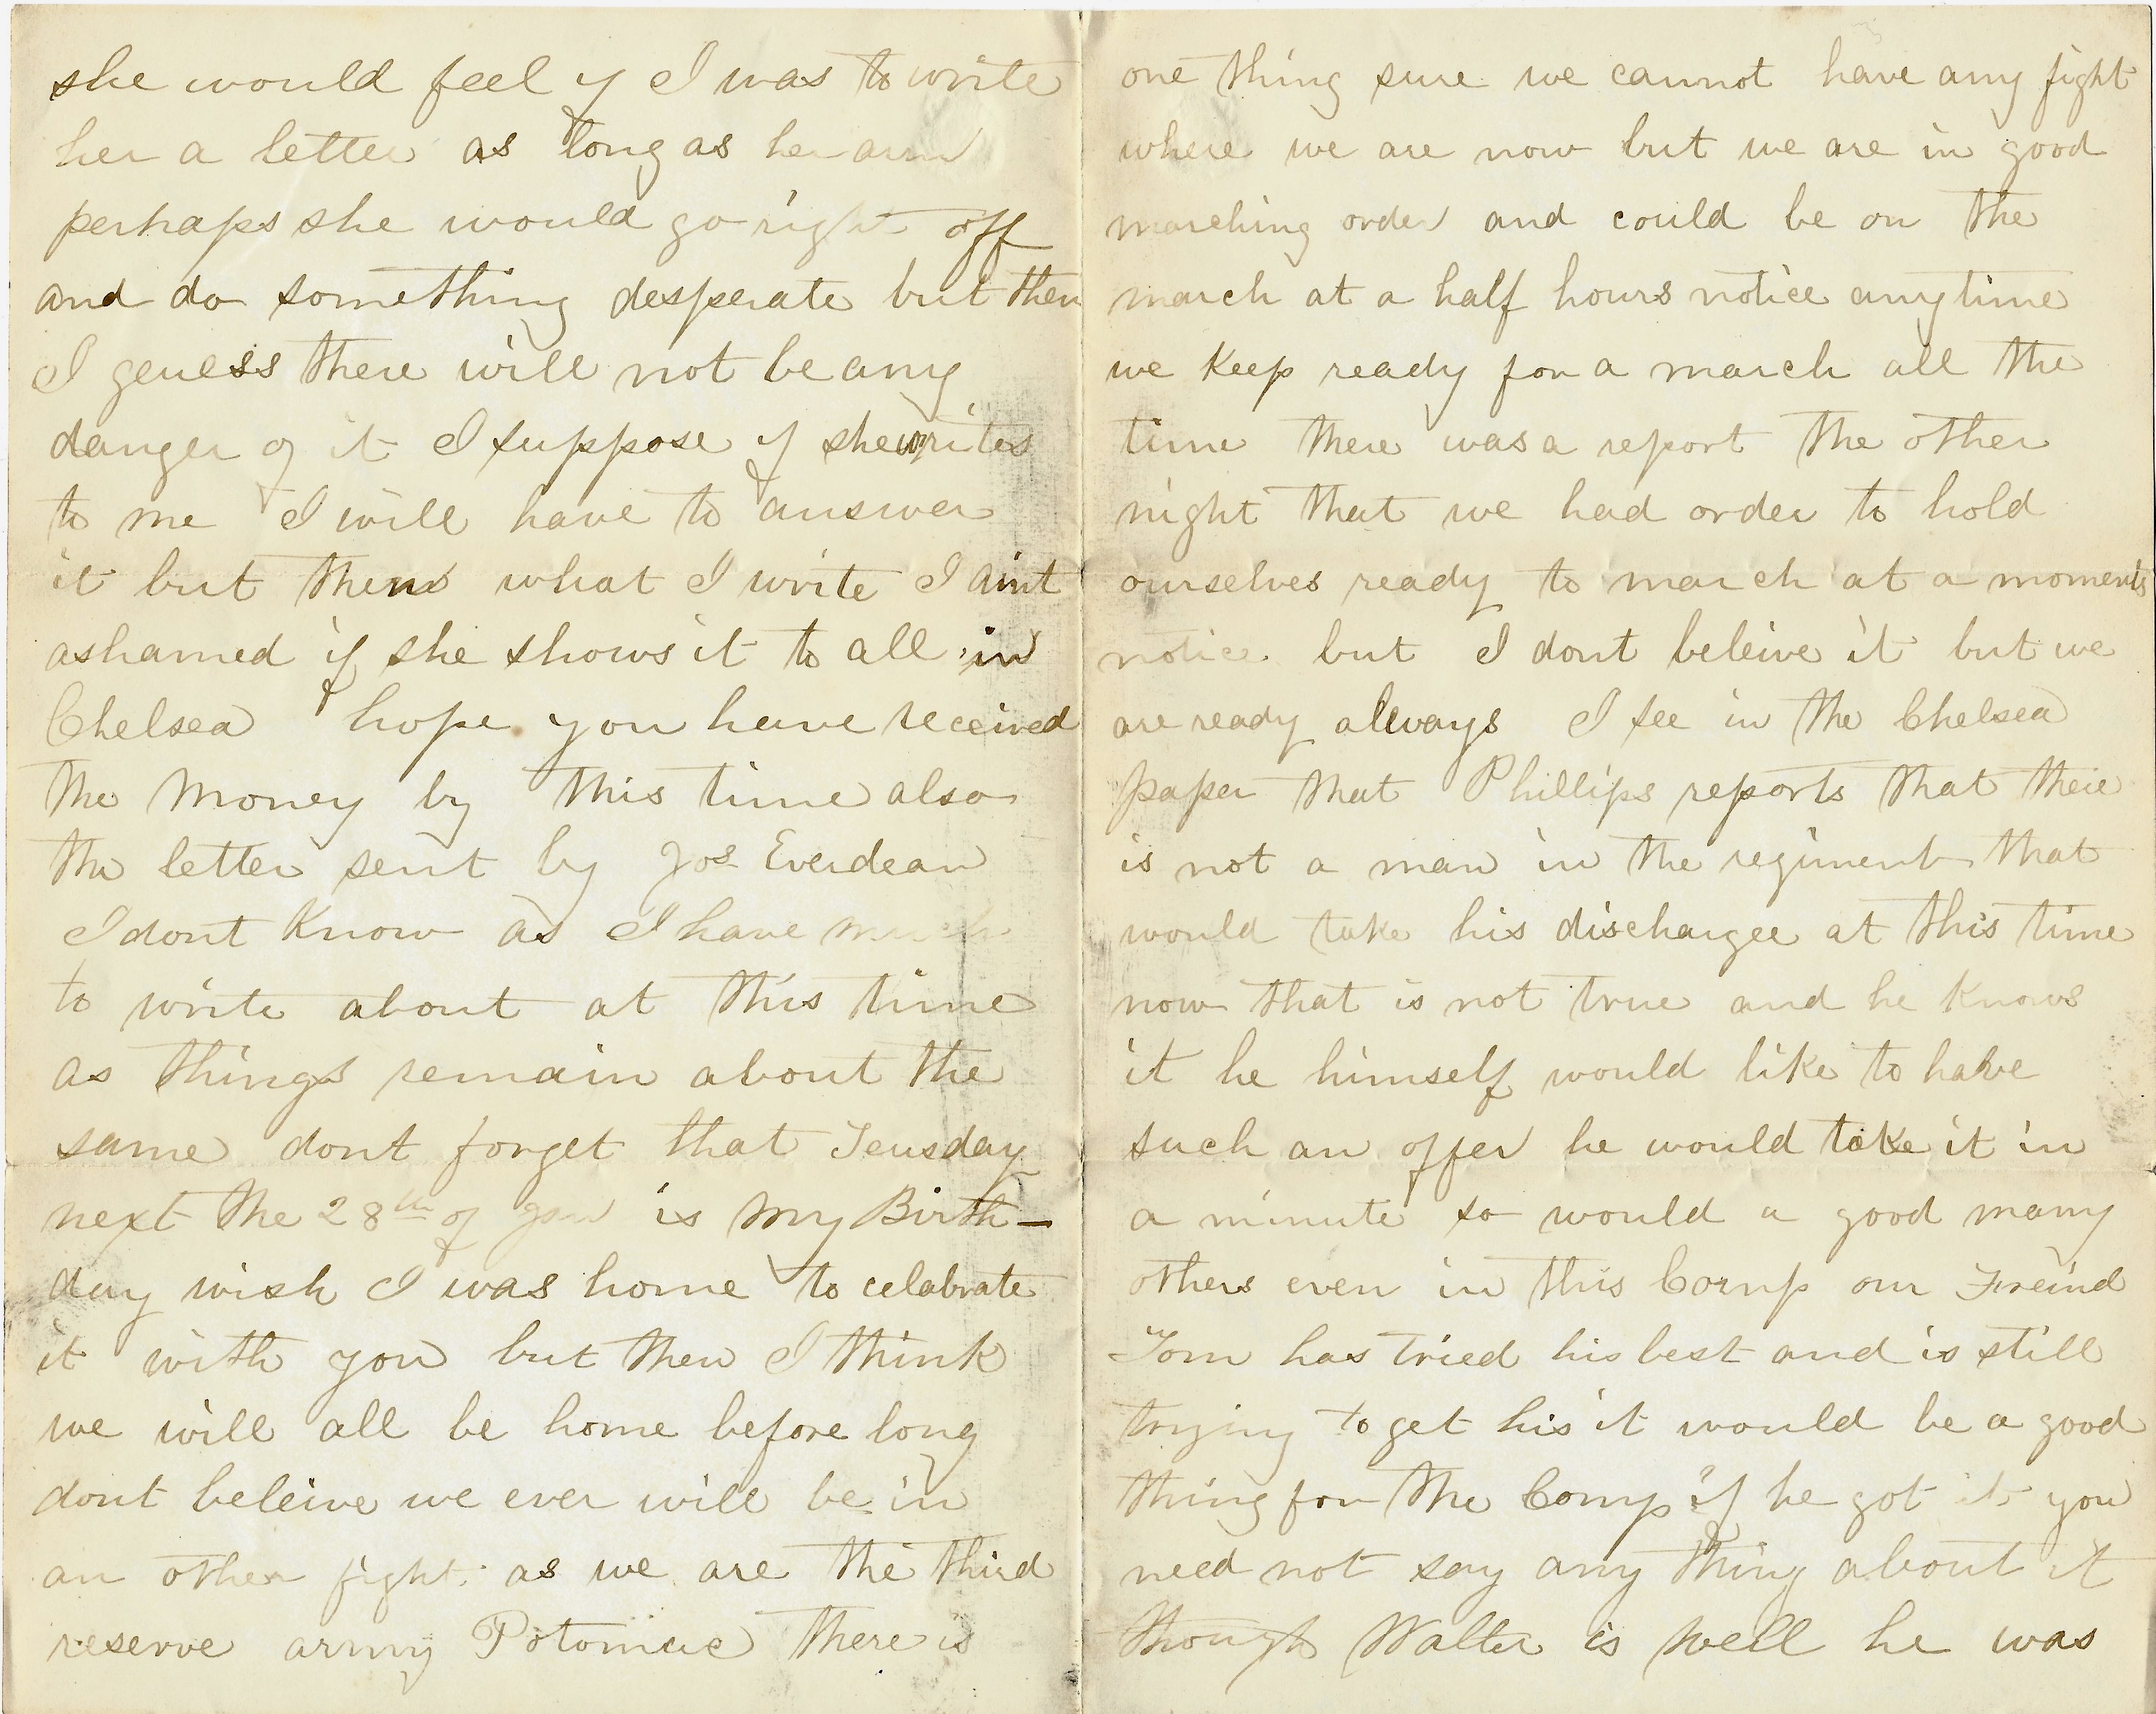 she would feel if I was to write
her a letter as long as her arm
perhaps she would go right off
and do something desperate but then
I geuess there will not be any
danger of it I suppose if she writes
to me I will have to answer
it but then what I write I aint
ashamed if she shows it to all in
Chelsea hope you have received
the money by this time also
the letter sent by Jos Everdean
I dont know as I have much
to write about at this time
as things remain about the
same dont forget that Teusday
next the 28th of Jan is my Birth-
day wish I was home to celabrate
it with you but then I think
we will all be home before long
dont beleive we ever will be in
an other fight as we are the third
reserve army Potomac there is
one thing sure we cannot have any fight
where we are now but we are in good
marching order and could be on the
march at a half hours notice anytime
we keep ready for a march all the
time there was a report the other
night that we had order to hold
ourselves ready to march at a moments
notice but I dont beleive it but we
are ready always I see in the Chelsea
paper that Phillips reports that there
is not a man in the regiment that
would take his dischargee at this time
now that is not true and he knows
it he himself would like to have
such an offer he would take it in
a minute so would a good many
others even in this Comp our Freind
Tom has tried his best and is still
trying to get his it would be a good
thing for the Comp if he got it you
need not say any thing about it
though Walter is well he was